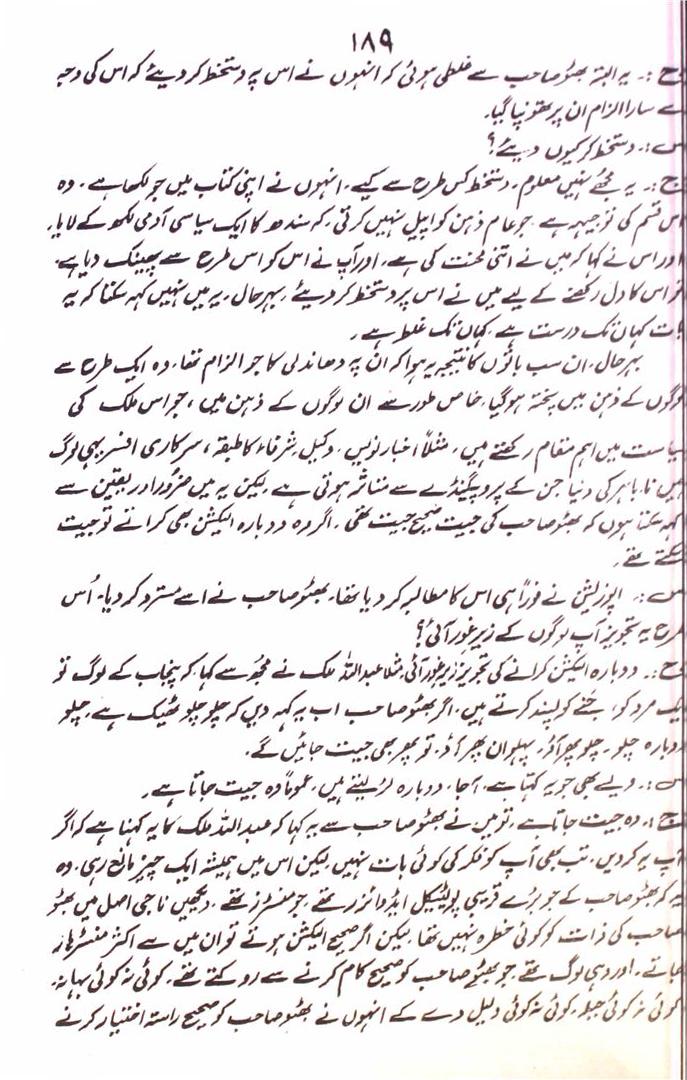 ۱۸۹
ج :۔ یہ البتہ بھٹو صاحب سے غلطی ہوئی کہ انہوں نے اس پہ دستخط کر دیئے کہ اس کی وجہ
سے سارا الزام ان پر تھونپا گیا۔
س :۔ دستخط کر کیوں دیئے؟
ج :۔ یہ مجھے نہیں معلوم۔ دستخط کس طرح سے کیے۔ انہوں نے اپنی کتاب میں جو لکھا ہے۔ وہ
اس قسم کی توجیہہ ہے۔ جو عام ذہن کو اپیل نہیں کرتی۔ کہ سندھ کا ایک سیاسی آدمی لکھ کے لایا۔
اور اس نے کہا کہ میں نے اتنی محنت کی ہے۔ اور آپ نے اس کو اس طرح سے پھینک دیا ہے۔
تو اس کا دل رکھنے کے لیے میں نے اس پر دستخط کر دیئے۔ بہرحال۔ یہ میں نہیں کہہ سکتا کہ یہ
بات کہاں تک درست ہے۔ کہاں تک غلط ہے۔
بہرحال۔ ان سب باتوں کا نتیجہ یہ ہوا کہ ان پہ دھاندلی کا جو الزام تھا۔ وہ ایک طرح سے
لوگوں کے ذہن میں پختہ ہو گیا۔ خاص طور سے ان لوگوں کے ذہن میں، جو اس ملک کی
سیاست میں اہم مقام رکھتے ہیں۔ مثلاً اخبار نویس۔ وکیل۔ شرفاء کا طبقہ، سرکاری افسر یہی لوگ
ہیں نا۔ باہر کی دنیا جن کے پروپیگنڈے سے متاثر ہوتی ہے۔ لیکن یہ میں ضرور اور یقین سے
کہہ سکتا ہوں کہ بھٹو صاحب کی جیت صحیح جیت تھی۔ اگر وہ دوبارہ الیکشن بھی کراتے تو جیت
سکتے تھے۔
س :۔ اپوزیشن نے فوراً ہی اس کا مطالبہ کر دیا تھا۔ بھٹو صاحب نے اسے مسترد کر دیا۔ اُس
طرح یہ تجویز آپ لوگوں کے زیرِ غور آئی؟
ج :۔ دوبارہ الیکشن کرانے کی تجویز زیرِ غور آئی۔ مثلاً عبداللہ ملک نے مجھ سے کہا۔ کہ پنجاب کے لوگ تو
ایک مرد کو، جنّے کو پسند کرتے ہیں۔ اگر بھٹو صاحب اب یہ کہہ دیں کہ چلو چلو ٹھیک ہے۔ چلو
دوبارہ چلو۔ چلو پھر آؤ۔ پہلوان پھر آؤ۔ تو پھر بھی جیت جائیں گے۔
س :۔ ویسے بھی جو یہ کہتا ہے۔ آجا۔ دوبارہ لڑ لیتے ہیں۔ عموماً وہ جیت جاتا ہے۔
ج :۔ وہ جیت جاتا ہے۔ تو میں نے بھٹو صاحب سے یہ کہا کہ عبداللہ ملک کا یہ کہنا ہے کہ اگر
آپ یہ کر دیں۔ تب بھی آپ کو فکر کی کوئی بات نہیں۔ لیکن اس میں ہمیشہ ایک چیز مانع رہی۔ وہ
یہ کہ بھٹو صاحب کے جو بڑے قریبی پولیٹیکل ایڈوائزر تھے۔ جو منسٹرز تھے۔ دیکھیں نا جی اصل میں بھٹو
صاحب کی ذات کو کوئی خطرہ نہیں تھا۔ لیکن اگر صحیح الیکشن ہوتے تو ان میں سے اکثر منسٹر ہار
جاتے۔ اور وہی لوگ تھے۔ جو بھٹو صاحب کو صحیح کام کرنے سے روکتے تھے۔ کوئی نہ کوئی بہانہ۔
کوئی نہ کوئی حیلہ۔ کوئی نہ کوئی دلیل دے کے انہوں نے بھٹو صاحب کو صحیح راستہ اختیار کرنے